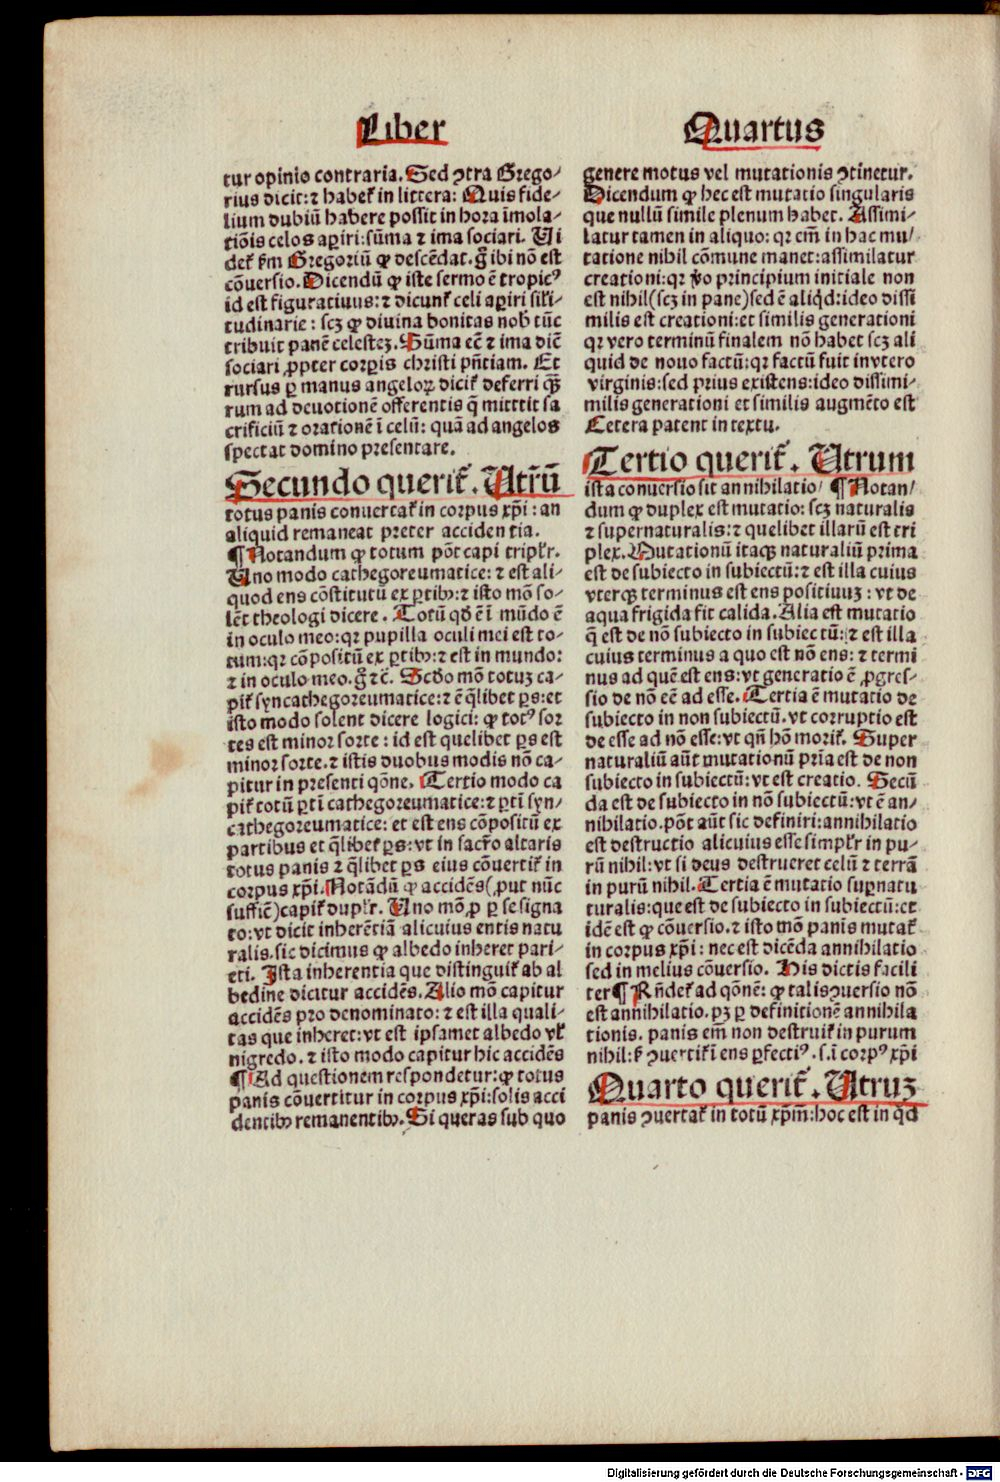 Liber
tur opinio contraria. Sed ↄtra Grego⸗
rius dicit: ⁊ habet᷑ in littera: Quis fide⸗
lium dubiū habere possit in hora īmola⸗
tiōis celos aꝑiri: sūma ⁊ ima sociari. Ui
det᷑ ẜm Gregoriū ꝙ descēdat. gͦ ibi nō est
cōuersio. Dicendū ꝙ iste sermo ē tropicꝰ
id est figuratiuus: ⁊ dicunt᷑ celi aꝑiri sil’i⸗
tudinarie: scꝫ ꝙ diuina bonitas nob̄ tūc
tribuit panē celestez. Sūma eē ⁊ ima diē
sociari ꝓpter corꝑis christi pn̄tiam. Et
rursus ꝑ manus angeloꝝ dicit᷑ deferri qꝫ̄
rum ad deuotionē offerentis q̄ mitttit sa
crificiū ⁊ orationē ī celū: quā ad angelos
spectat domino presentare.
Secundo querit᷑. Utrū
totus panis conuertat᷑ in corpus xp̄i: an
aliquid remaneat preter acciden tia.
¶ Notandum ꝙ totum pōt capi tripl’r.
Uno modo cathegoreumatice: ⁊ est ali⸗
quod ens cōstitutū ex ꝑtibꝫ: ⁊ isto mō so⸗
lēt theologi dicere. Totū qd̄ ē ī mūdo ē
in oculo meo: qr pupilla oculi mei est to⸗
tum: qr cōpositū ex ꝑtibꝫ: ⁊ est in mundo:
⁊ in oculo meo. gͦ ⁊c̄. Scd̄o mō totuz ca⸗
pit᷑ syncathegoreumatice: ⁊ ē q̄libet ꝑs: et
isto modo solent dicere logici: ꝙ totꝰ sor
tes est minor sorte: id est quelibet ꝑs est
minor sorte. ⁊ istis duobus modis nō ca⸗
pitur in presenti qōne. Tertio modo ca
pit᷑ totū ꝑtī cathegoreumatice: ⁊ ꝑtī syn⸗
cathegoreumatice: et est ens cōpositū ex
partibus et q̄libet ꝑs: vt in sacr̄o altaris
totus panis ⁊ q̄libet ꝑs eius cōuertit᷑ in
corpus xp̄i. Notādū ꝙ accidēs (ꝓut nūc
sufficē) capit᷑ dupl’r. Uno mō ꝓ ꝑ se signa
to: vt dicit inherētiā alicuius entis natu
ralis. sic dicimus ꝙ albedo inheret pari⸗
eti. Ista inherentia que distinguit᷑ ab al
bedine dicitur accidēs. Alio mō capitur
accidēs pro denominato: ⁊ est illa quali⸗
tas que inheret: vt est ipsamet albedo vl’
nigredo. ⁊ isto modo capitur hic accidēs
¶ Ad questionem respondetur: ꝙ totus
panis cōuertitur in corpus xp̄i: solis acci
dentibꝫ remanentibꝫ. Si queras sub quo
Quartus
genere motus vel mutationis ↄtinetur.
Dicendum ꝙ hec est mutatio singularis
que nullū simile plenum habet. Assimi⸗
latur tamen in aliquo: qr cm̄ in hac mu⸗
tatione nihil cōmune manet: assimilatur
creationi: qr v̊o principium initiale non
est nihil (scꝫ in pane) sed ē aliq̇d: ideo dissi
milis est creationi: et similis generationi
qr vero terminū finalem nō habet scꝫ ali
quid de nouo factū: qr factū fuit invtero
virginis: sed prius existens: ideo dissimi⸗
milis generationi et similis augmēto est
Cetera patent in textu.
Tertio querit᷑. Utrum
ista conuersio sit annihilatio/ ¶ Notan⸗
dum ꝙ duplex est mutatio: scꝫ naturalis
⁊ supernaturalis: ⁊ quelibet illarū est tri
plex. Mutationū itaqꝫ naturaliū prima
est de subiecto in subiectū: ⁊ est illa cuius
vterqꝫ terminus est ens positiuuz: vt de
aqua frigida fit calida. Alia est mutatio
q̄ est de nō subiecto in subiec tū: ⁊ est illa
cuius terminus a quo est nō ens: ⁊ termi
nus ad quē est ens: vt generatio ē ꝓgres⸗
sio de nō eē ad esse. Tertia ē mutatio de
subiecto in non subiectū. vt corruptio est
de esse ad nō esse: vt qn̄ hō morit᷑. Super
naturaliū aūt mutationū pria est de non
subiecto in subiectū: vt est creatio. Secū
da est de subiecto in nō subiectū: vt ē an⸗
nihilatio. pōt aūt sic definiri: annihilatio
est destructio alicuius esse simpl’r in pu⸗
rū nihil: vt si deus destrueret celū ⁊ terrā
in purū nihil. Tertia ē mutatio suꝑnatu
turalis: que est de subiecto in subiectū: et
idē est ꝙ cōuersio. ⁊ isto mō panis mutat᷑
in corpus xp̄i: nec est dicēda annihilatio
sed in melius cōuersio. His dictis facili
ter ¶ Rn̄det᷑ ad qōnē: ꝙ talis ↄuersio nō
est annihilatio. pꝫ ꝑ definitionē annihila
tionis. panis em̄ non destruit᷑ in purum
nihil: ẜ ↄuertit᷑ ī ens ꝑfectiꝰ. s. ī corpꝰ xp̄i
Quarto querit᷑. Utruz
panis ↄuertat᷑ in totū xp̄m: hoc est in q̇d
Digitalisierung gefördert durch die Deutsche Forschungsgemeinschaft - DFG